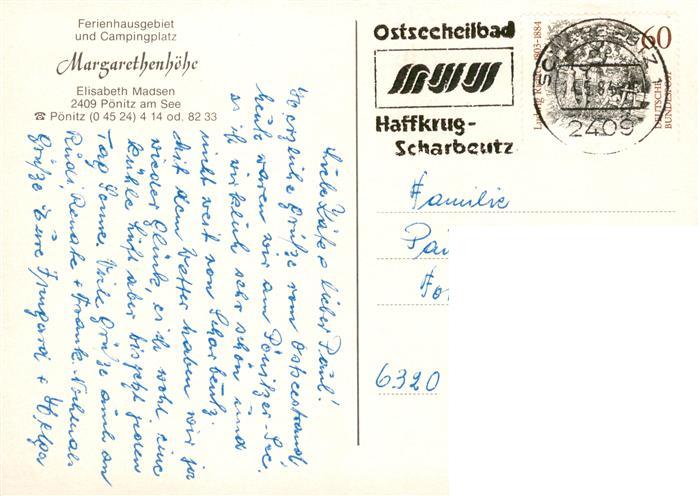 Ferienhausgebiet
und Campingplatz
Margarethenhöhe
Elisabeth Madsen
2409 Pönitz am See
☎ Pönitz (0 45 24) 4 14 od. 82 33
Liebe Käte + lieber Paul!
Herzliche Grüße vom Ostseestrand,
heute waren wir am Pönitzer See.
es ist wirklich sehr schön und
nicht weit von Scharbeutz.
Mit dem Wetter haben wir ja
wieder Glück, es ist wohl eine
kühle Luft aber bis jetzt jeden
Tag Sonne. Viele Grüße auch an
Rudi, Renate + Frank. Nochmals
Grüße Eure Irmgard + Helga
Ostseeheilbad
Haffkrug-
Scharbeutz
SCHARBEUTZ 1
2409
60
Ludwig Richter 1803-1884
DEUTSCHE
BUNDESPOST
Familie
6320